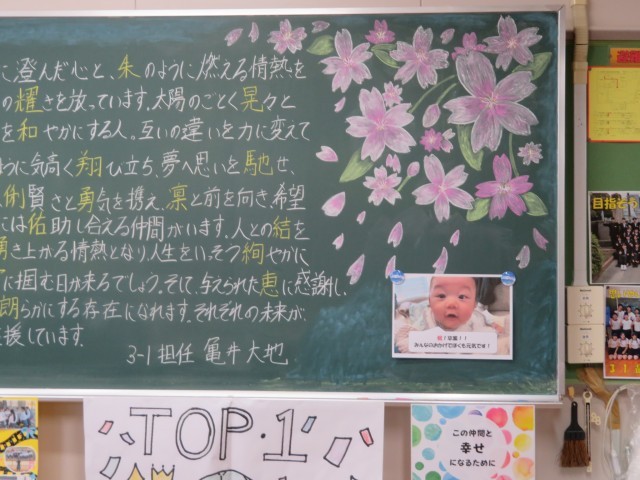 に澄んだ心と、朱のように燃える情熱を
の耀さを放っています。太陽のごとく晃々と
を和やかにする人。互いの違いを力に変えて
ように気高く翔び立ち、夢へ思いを馳せ、
俐賢さと勇気を携え、凛と前を向き、希望
には佑助し合える仲間がいます。人との結を
湧き上がる情熱となり人生をいっそう絢やかに
に掴む日が来るでしょう。そして、与えられた恵に感謝し、
朗らかにする存在になれます。それぞれの未来が、
応援しています。
3-1担任 亀井大地
祝!卒業!!
みんなのおかげでぼくも元気です!
目指そう
3.1
TOP.1
この仲間と
幸せ
になるために